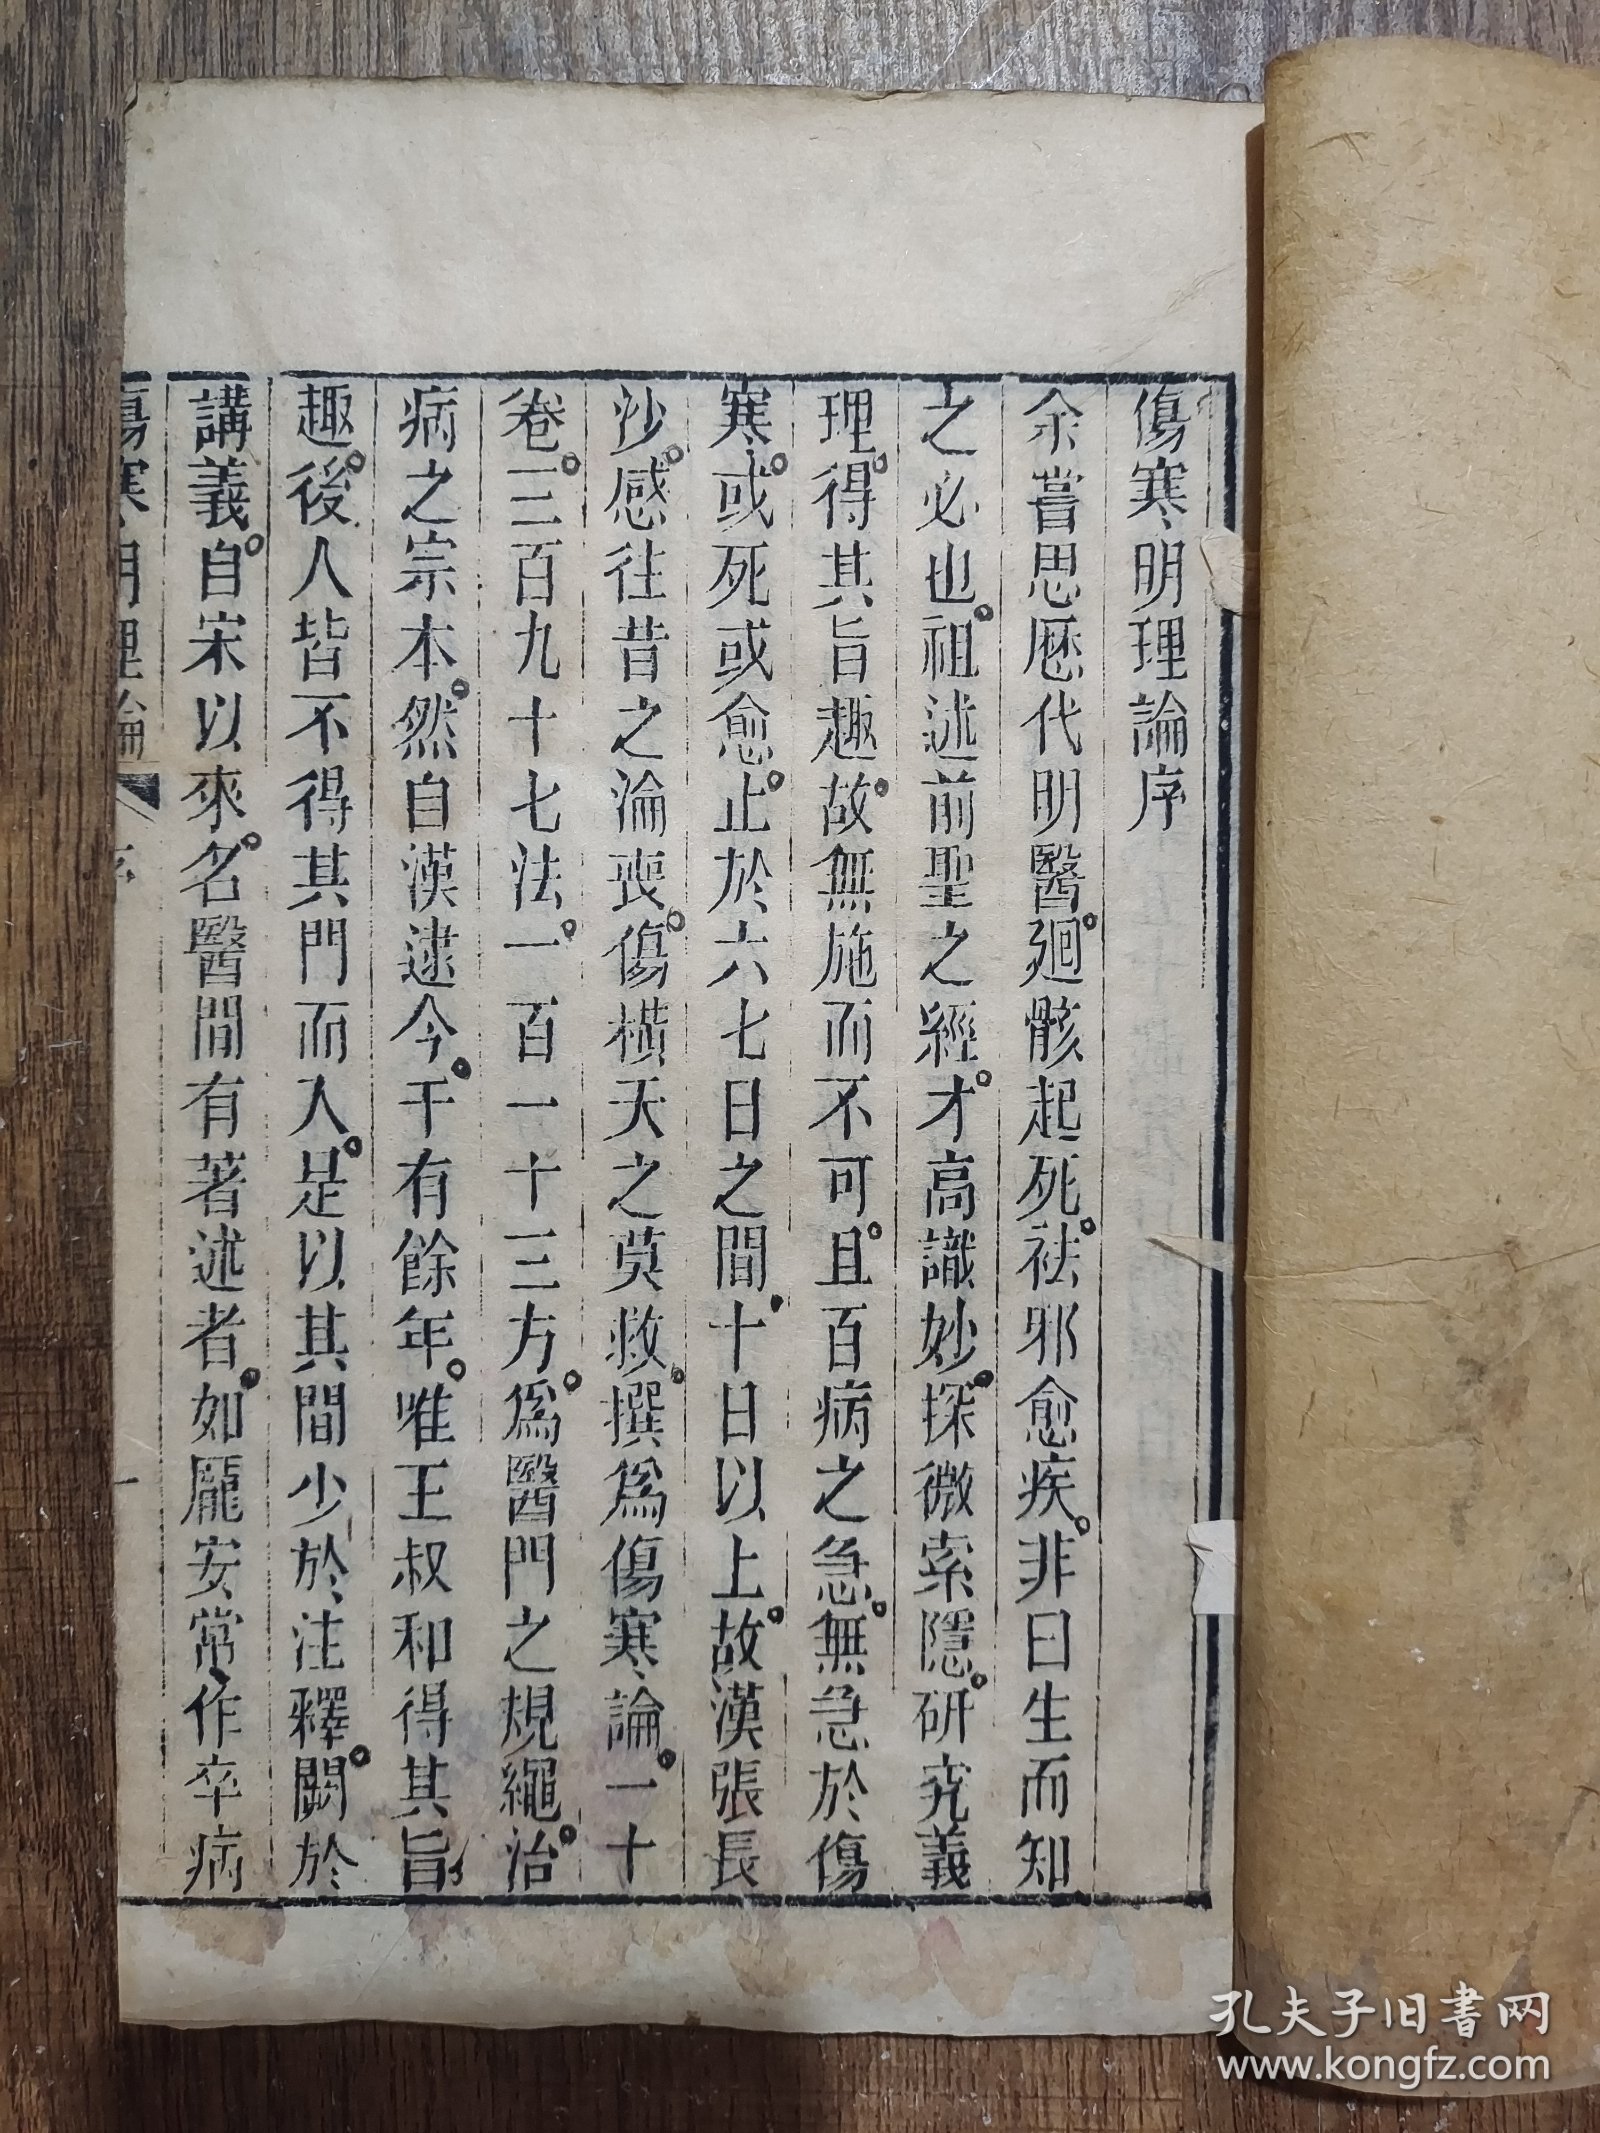 傷寒明理論序
余嘗思厯代明醫。廻骸起死。祛邪愈疾。非曰生而知
之必也。祖述前聖之經。才高識妙。探微索隱。研究義
理。得其旨趣。故無施而不可。且百病之急。無急於傷
寒。或死或愈。止於六七日之間。十日以上。故漢張長
沙。感往昔之淪喪。傷橫夭之莫救。撰爲傷寒論。一十
卷。三百九十七法。一百一十三方。爲醫門之規繩。治
病之宗本。然自漢逮今。千有餘年。唯王叔和得其旨
趣。後人皆不得其門而入。是以其間少於注釋。闕於
講義。自宋以來。名醫間有著述者。如龐安常作卒病
傷寒明理論 序 一
孔夫子旧书网
www.kongfz.com